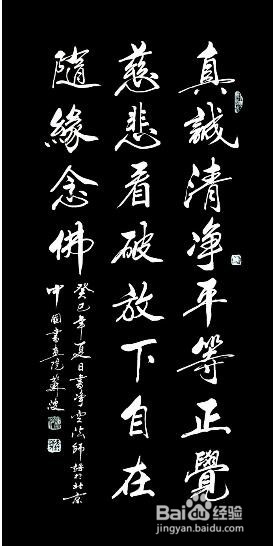 真誠清净平等正覺
慈悲看破放下自在
隨緣念佛
癸巳年夏日書淨空法師語於北京
中國書畫院蘇俊
Baidu经验
jingyan.baidu.com